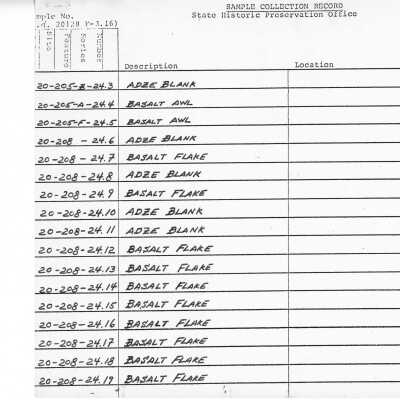 SAMPLE COLLECTION RECORD
State Historic Preservation Office
mple No.
20128 F-3.16)
Site
Feature
Series
Number
Description Location
20-205-E-24.3 ADZE BLANK
20-205-A-24.4 BASALT AWL
20-205-F-24.5 BASALT AWL
20-208 - 24.6 ADZE BLANK
20-208 - 24.7 BASALT FLAKE
20-208-24.8 ADZE BLANK
20-208-24.9 BASALT FLAKE
20-208-24.10 ADZE BLANK
20-208-24.11 ADZE BLANK
20-208-24.12 BASALT FLAKE
20-208-24.13 BASALT FLAKE
20-208-24.14 BASALT FLAKE
20-208-24.15 BASALT FLAKE
20-208-24.16 BASALT FLAKE
20-208-24.17 BASALT FLAKE
20-208-24.18 BASALT FLAKE
20-208-24.19 BASALT FLAKE